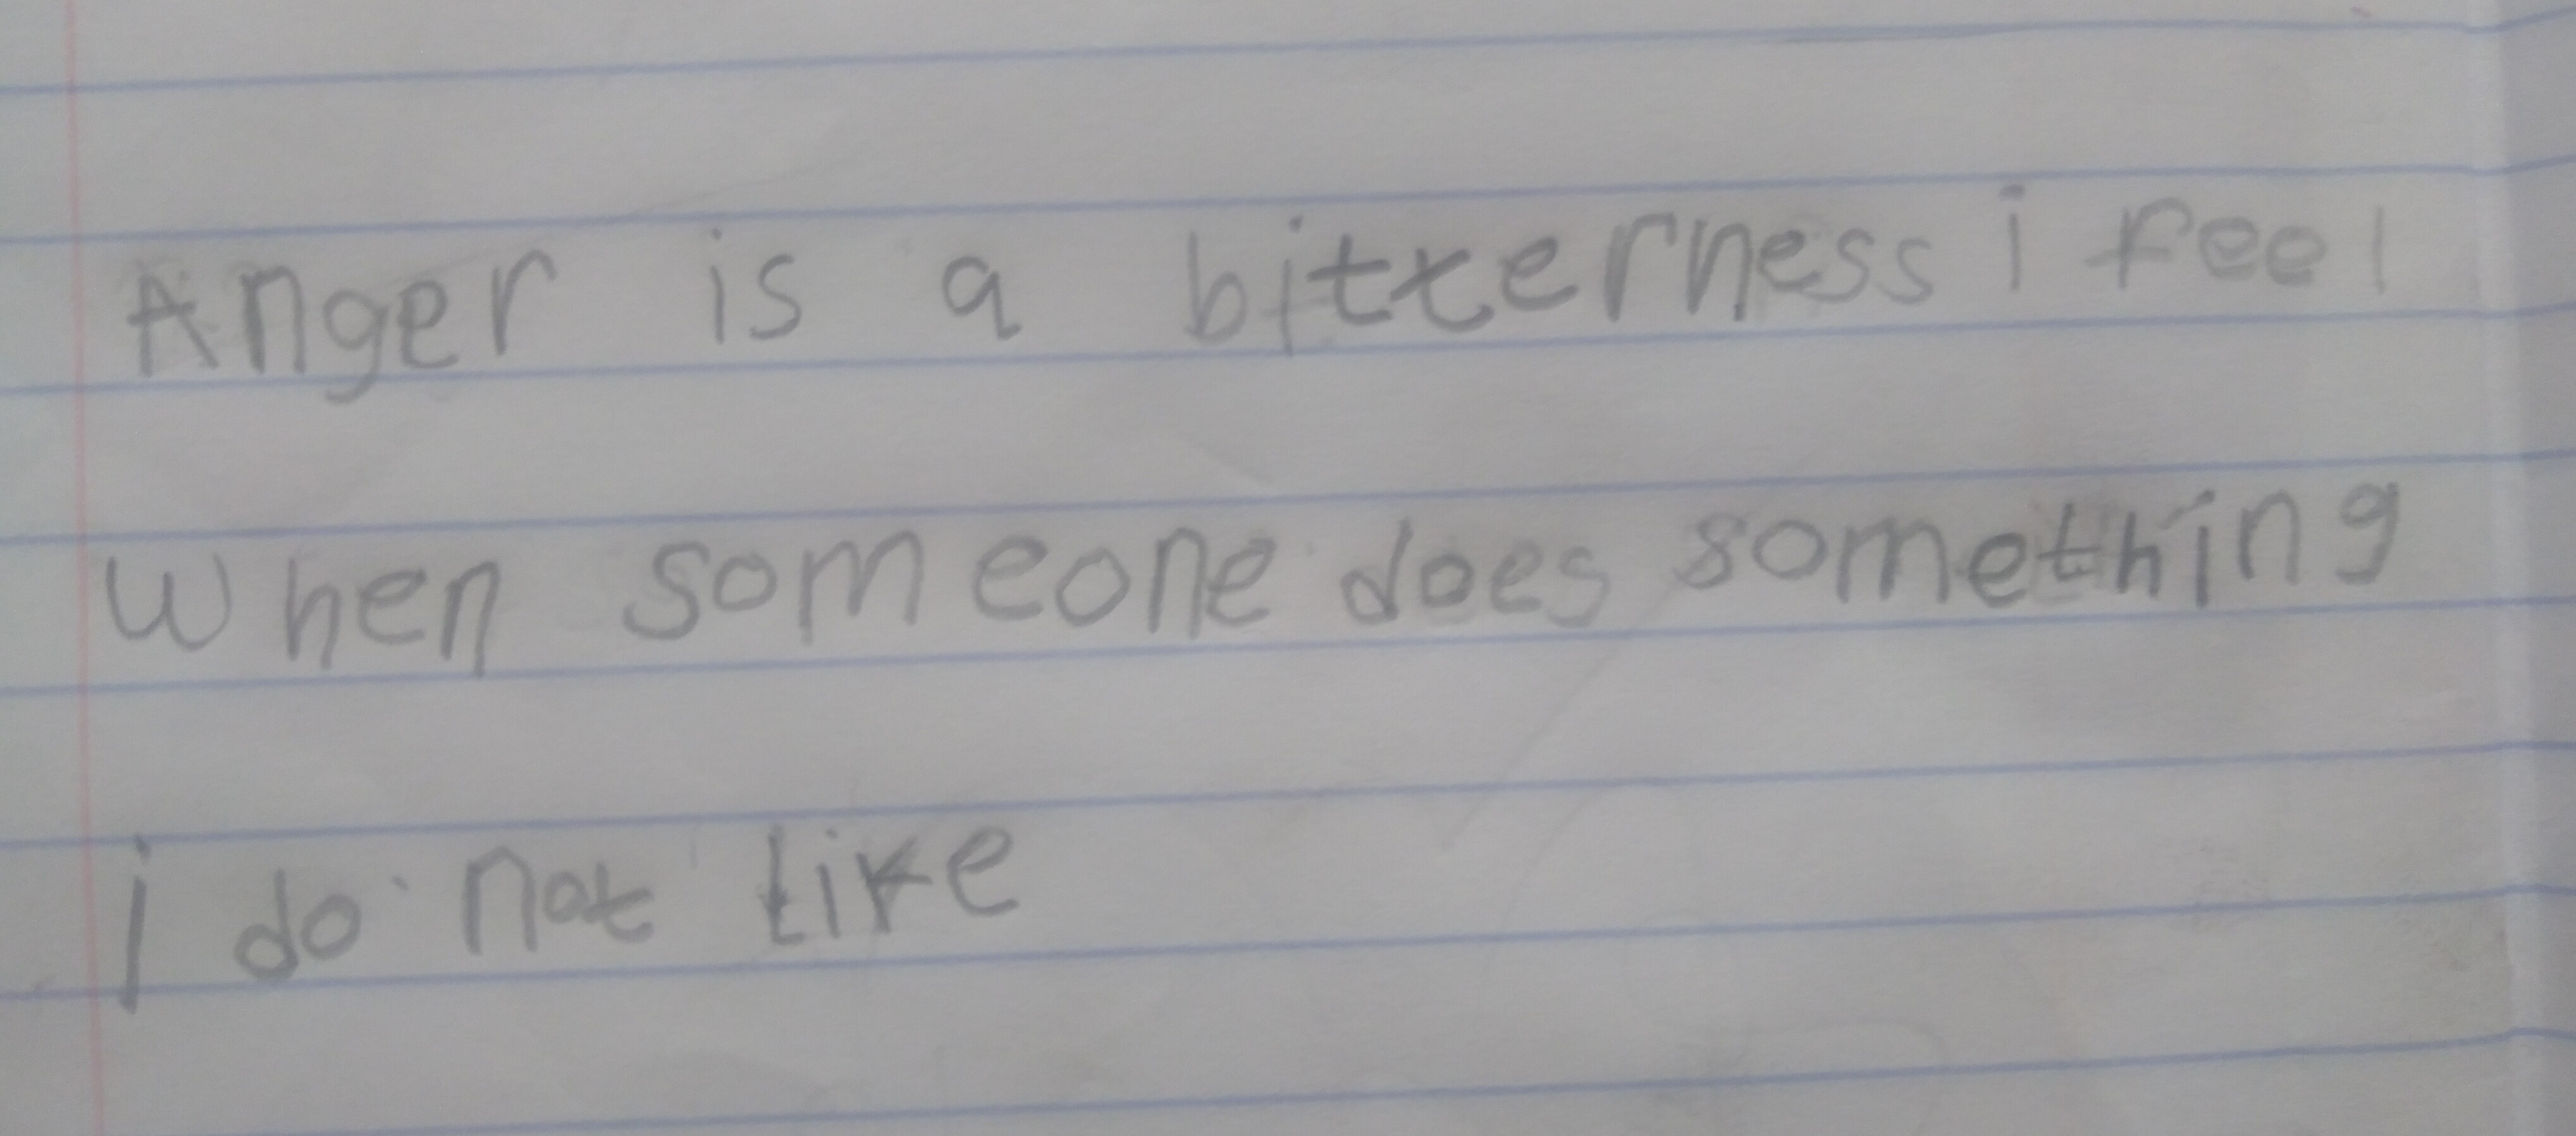 Anger is a bitterness i feel
when someone does something
i do not like